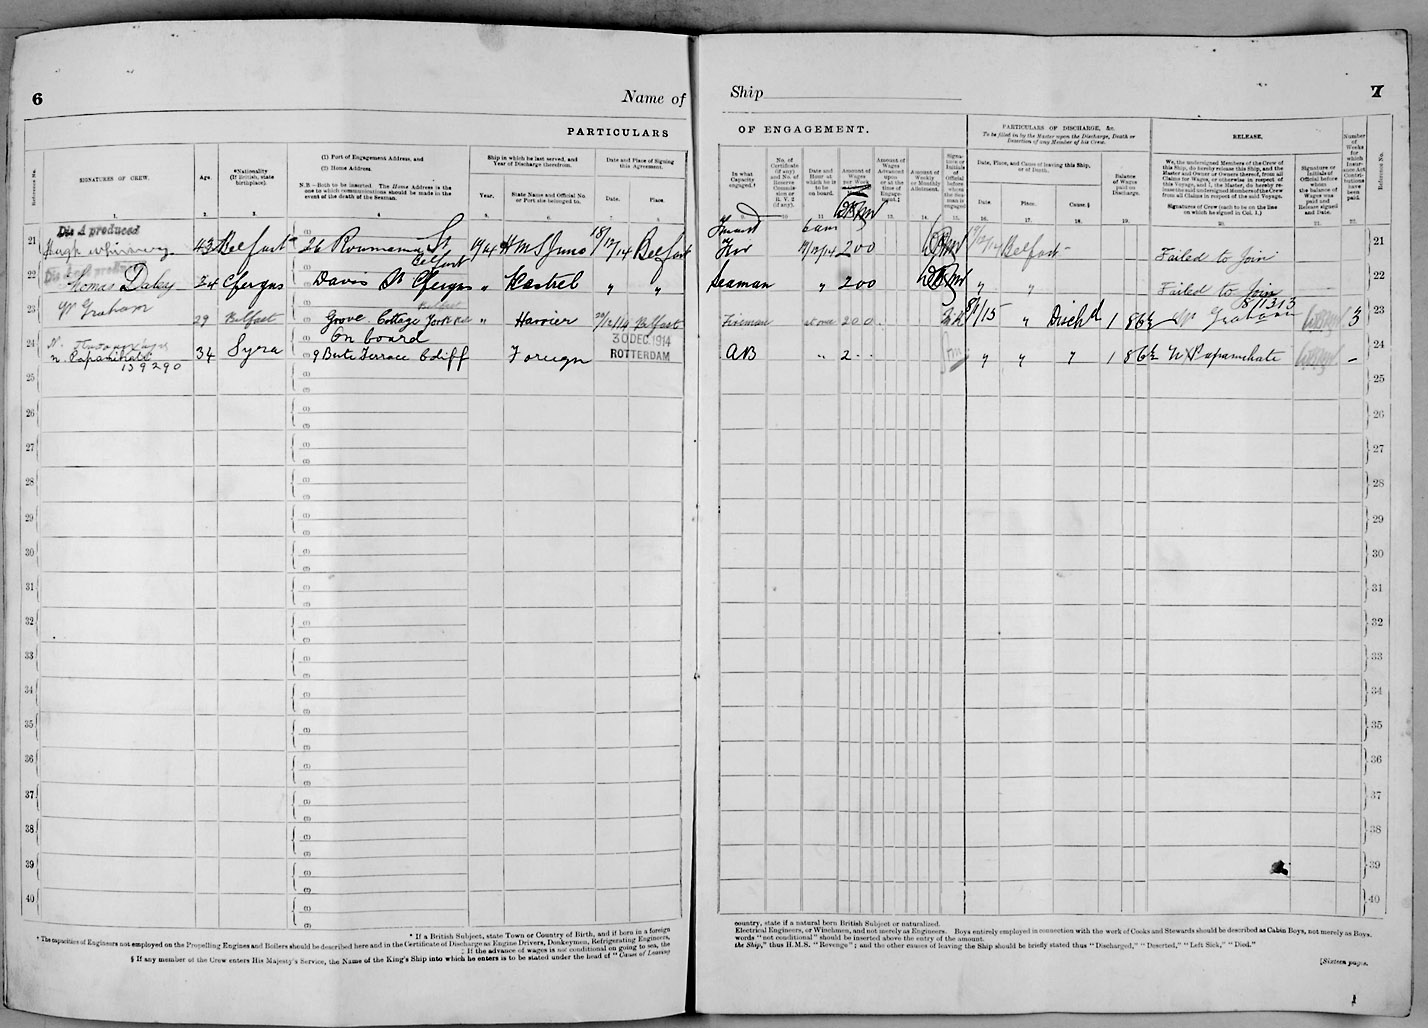 6
Name of
Ship
7
PARTICULARS
OF ENGAGEMENT.
PARTICULARS OF DISCHARGE, &c.
To be filled in by the Master upon the Discharge, Death or
Desertion of any Member of his Crew.
RELEASE.
Reference No.
SIGNATURES OF CREW.
Age.
*Nationality
(If British, state
birthplace).
(1) Port of Engagement Address, and
(2) Home Address.
N.B.—Both to be inserted. The Home Address is the
one to which communications should be made in the
event of the death of the Seaman.
Ship in which he last served, and
Year of Discharge therefrom.
Year.
State Name and Official No.
or Port she belonged to.
Date and Place of Signing
this Agreement.
Date.
Place.
In what
Capacity
engaged.†
No. of
Certificate
(if any)
and No. of
Reserve
Commis-
sion or
R. V. 2
(if any).
Date and
Hour at
which he is
to be
on board.
Amount of
Wages
per Week
Amount of
Wages
Advanced
upon
or at the
time of
Engage-
ment.‡
Amount of
Weekly
or Monthly
Allotment.
Signa-
ture or
Initials of
Official
before
whom
the Sea-
man is
engaged
Date, Place, and Cause of leaving this Ship,
or of Death.
Date.
Place.
Cause.§
Balance
of Wages
paid on
Discharge.
We, the undersigned Members of the Crew of
this Ship, do hereby release this Ship, and the
Master and Owner or Owners thereof, from all
Claims for Wages, or otherwise in respect of
this Voyage, and I, the Master, do hereby re-
lease the said undersigned Members of the Crew
from all Claims in respect of the said Voyage.
Signatures of Crew (each to be on the line
on which he signed in Col. 1.)
Signature or
Initials of
Official before
whom
the balance of
Wages was
paid and
Release signed
and Date.
Number
of
Weeks
for
which
Insur-
ance Act
Contri-
butions
have
been
paid.
Reference No.
1.
2.
3.
4.
5.
6.
7.
8.
9.
10.
11.
13.
14.
15.
16.
17.
18.
19.
20.
21.
22.
Dis A produced
21 Hugh 43 Belfast 26 Roumania St Belfast 1914 HMS Juno 18/12/14 Belfast 6 am 19/12/14 200 19/12/14 Belfast Failed to join 21
22 Thomas Daley 24 C'fergus Davis St C'fergus " Kestrel " " Seaman " 200 " " Failed to Join 22
23 W Graham 29 Belfast Grove Cottage York Rd Belfast " Harrier 29/12/14 Belfast Fireman at once 200 8/1/15 " Disch'd 1 8 6½ W Graham 81313 3 23
24 N. Papamihale 139290 34 Syra On board 9 Bute Terrace Cdiff Foreign 30 DEC. 1914 ROTTERDAM AB " 2 - - " " " 1 8 6½ N Papamihale - 24
25 25
26 26
27 27
28 28
29 29
30 30
31 31
32 32
33 33
34 34
35 35
36 36
37 37
38 38
39 39
40 40
* If a British Subject, state Town or Country of Birth, and if born in a foreign
country, state if a natural born British Subject or naturalized.
† The capacities of Engineers not employed on the Propelling Engines and Boilers should be described here and in the Certificate of Discharge as Engine Drivers, Donkeymen, Refrigerating Engineers,
Electrical Engineers, or Winchmen, and not merely as Engineers. Boys entirely employed in connection with the work of Cooks and Stewards should be described as Cabin Boys, not merely as Boys.
‡ If the advance of wages is not conditional on going to sea, the
words "not conditional" should be inserted above the entry of the amount.
§ If any member of the Crew enters His Majesty's Service, the Name of the King's Ship into which he enters is to be stated under the head of "Cause of Leaving
the Ship," thus H.M.S. "Revenge"; and the other causes of leaving the Ship should be briefly stated thus "Discharged," "Deserted," "Left Sick," "Died."
[Sixteen pages.